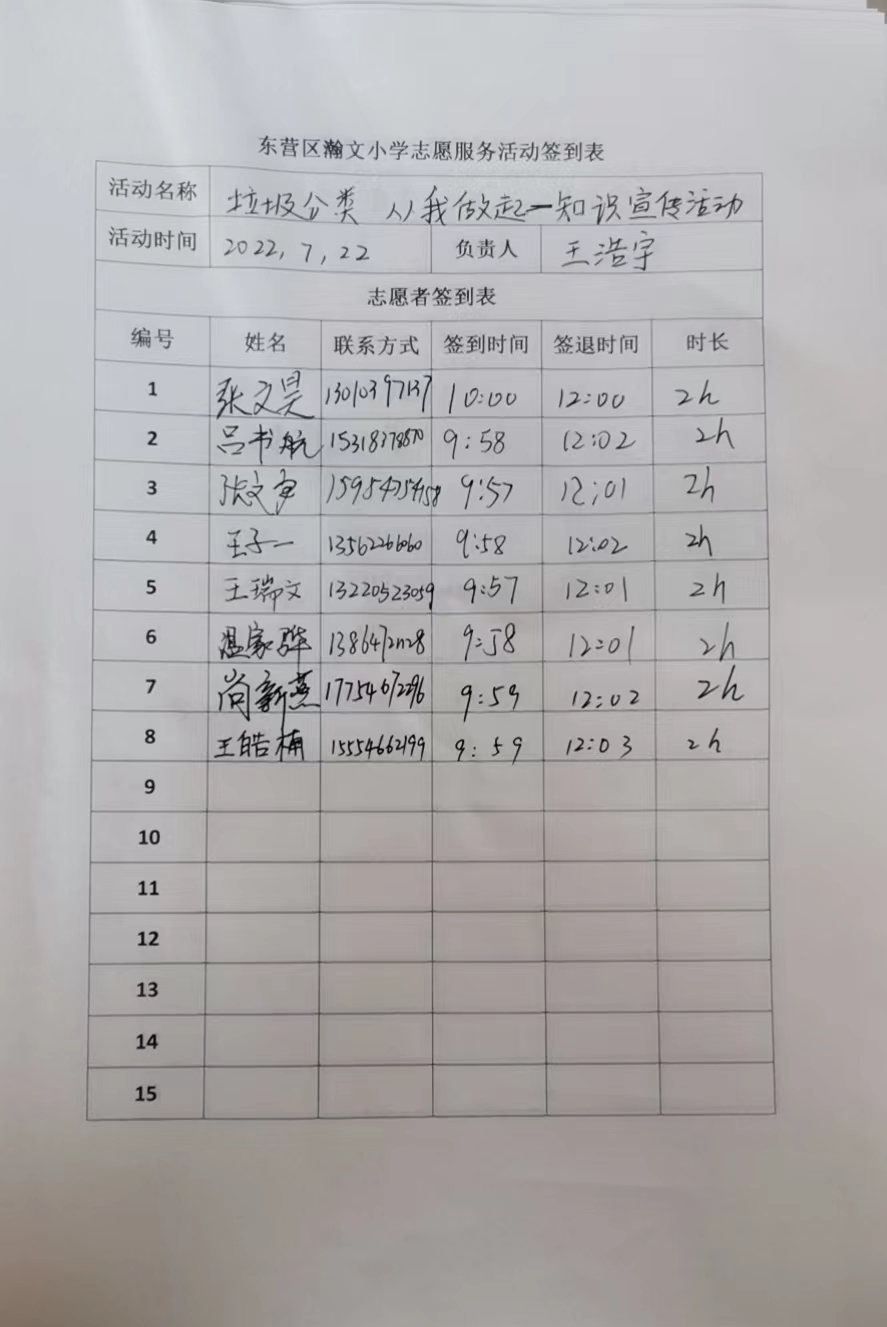 东营区瀚文小学志愿服务活动签到表
活动名称 垃圾分类 从我做起—知识宣传活动
活动时间 2022,7,22 负责人 王浩宇
志愿者签到表
编号 姓名 联系方式 签到时间 签退时间 时长
1 张文昊 13010397137 10:00 12:00 2h
2 吕书航 15318378870 9:58 12:02 2h
3 张文 15954754158 9:57 12:01 2h
4 王子一 13562266060 9:58 12:02 2h
5 王瑞文 13220523059 9:57 12:01 2h
6 温家骅 9:58 12:01 2h
7 尚新燕 17754672296 9:59 12:02 2h
8 王皓楠 15554662199 9:59 12:03 2h
9
10
11
12
13
14
15